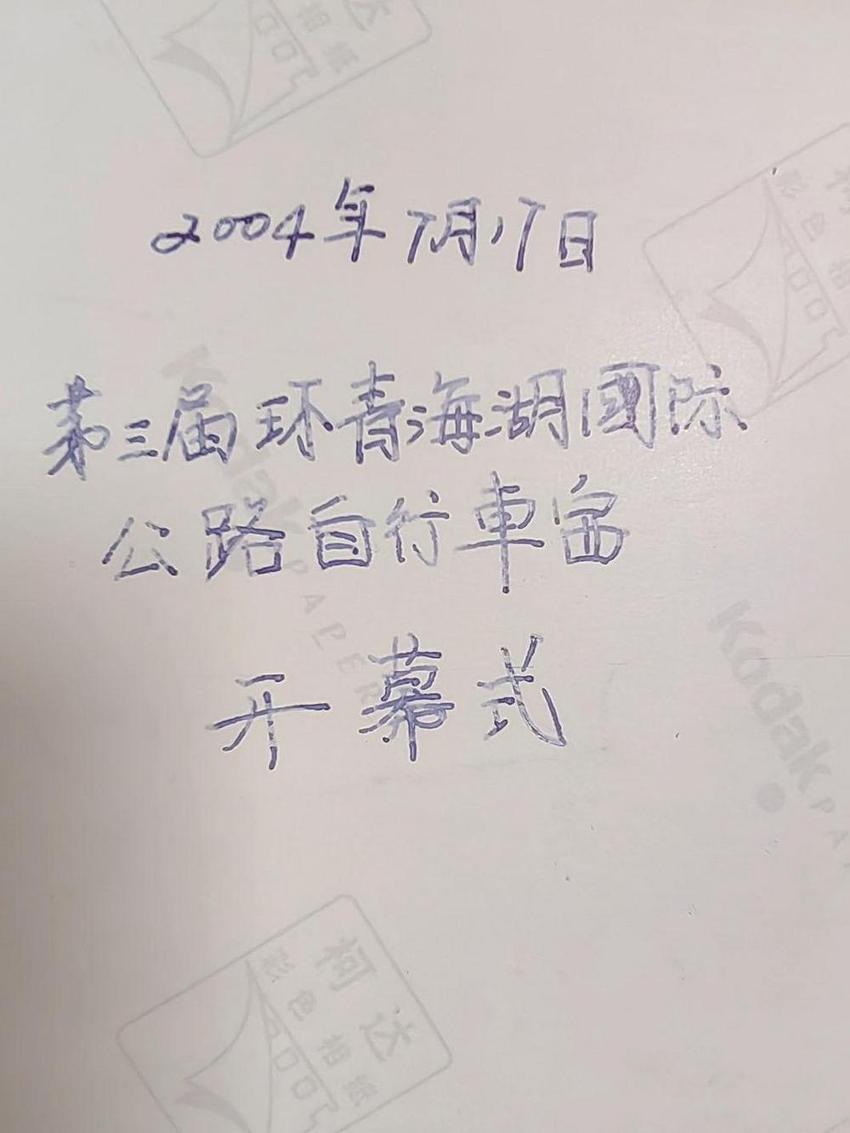 柯达
彩色相纸
2004年7月17日
第三届环青海湖國际
公路自行車赛
开幕式
Kodak
PAPER
Kodak
柯达
彩色相纸